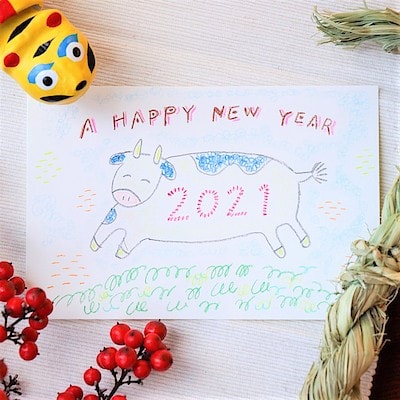 A HAPPY NEW YEAR
2021